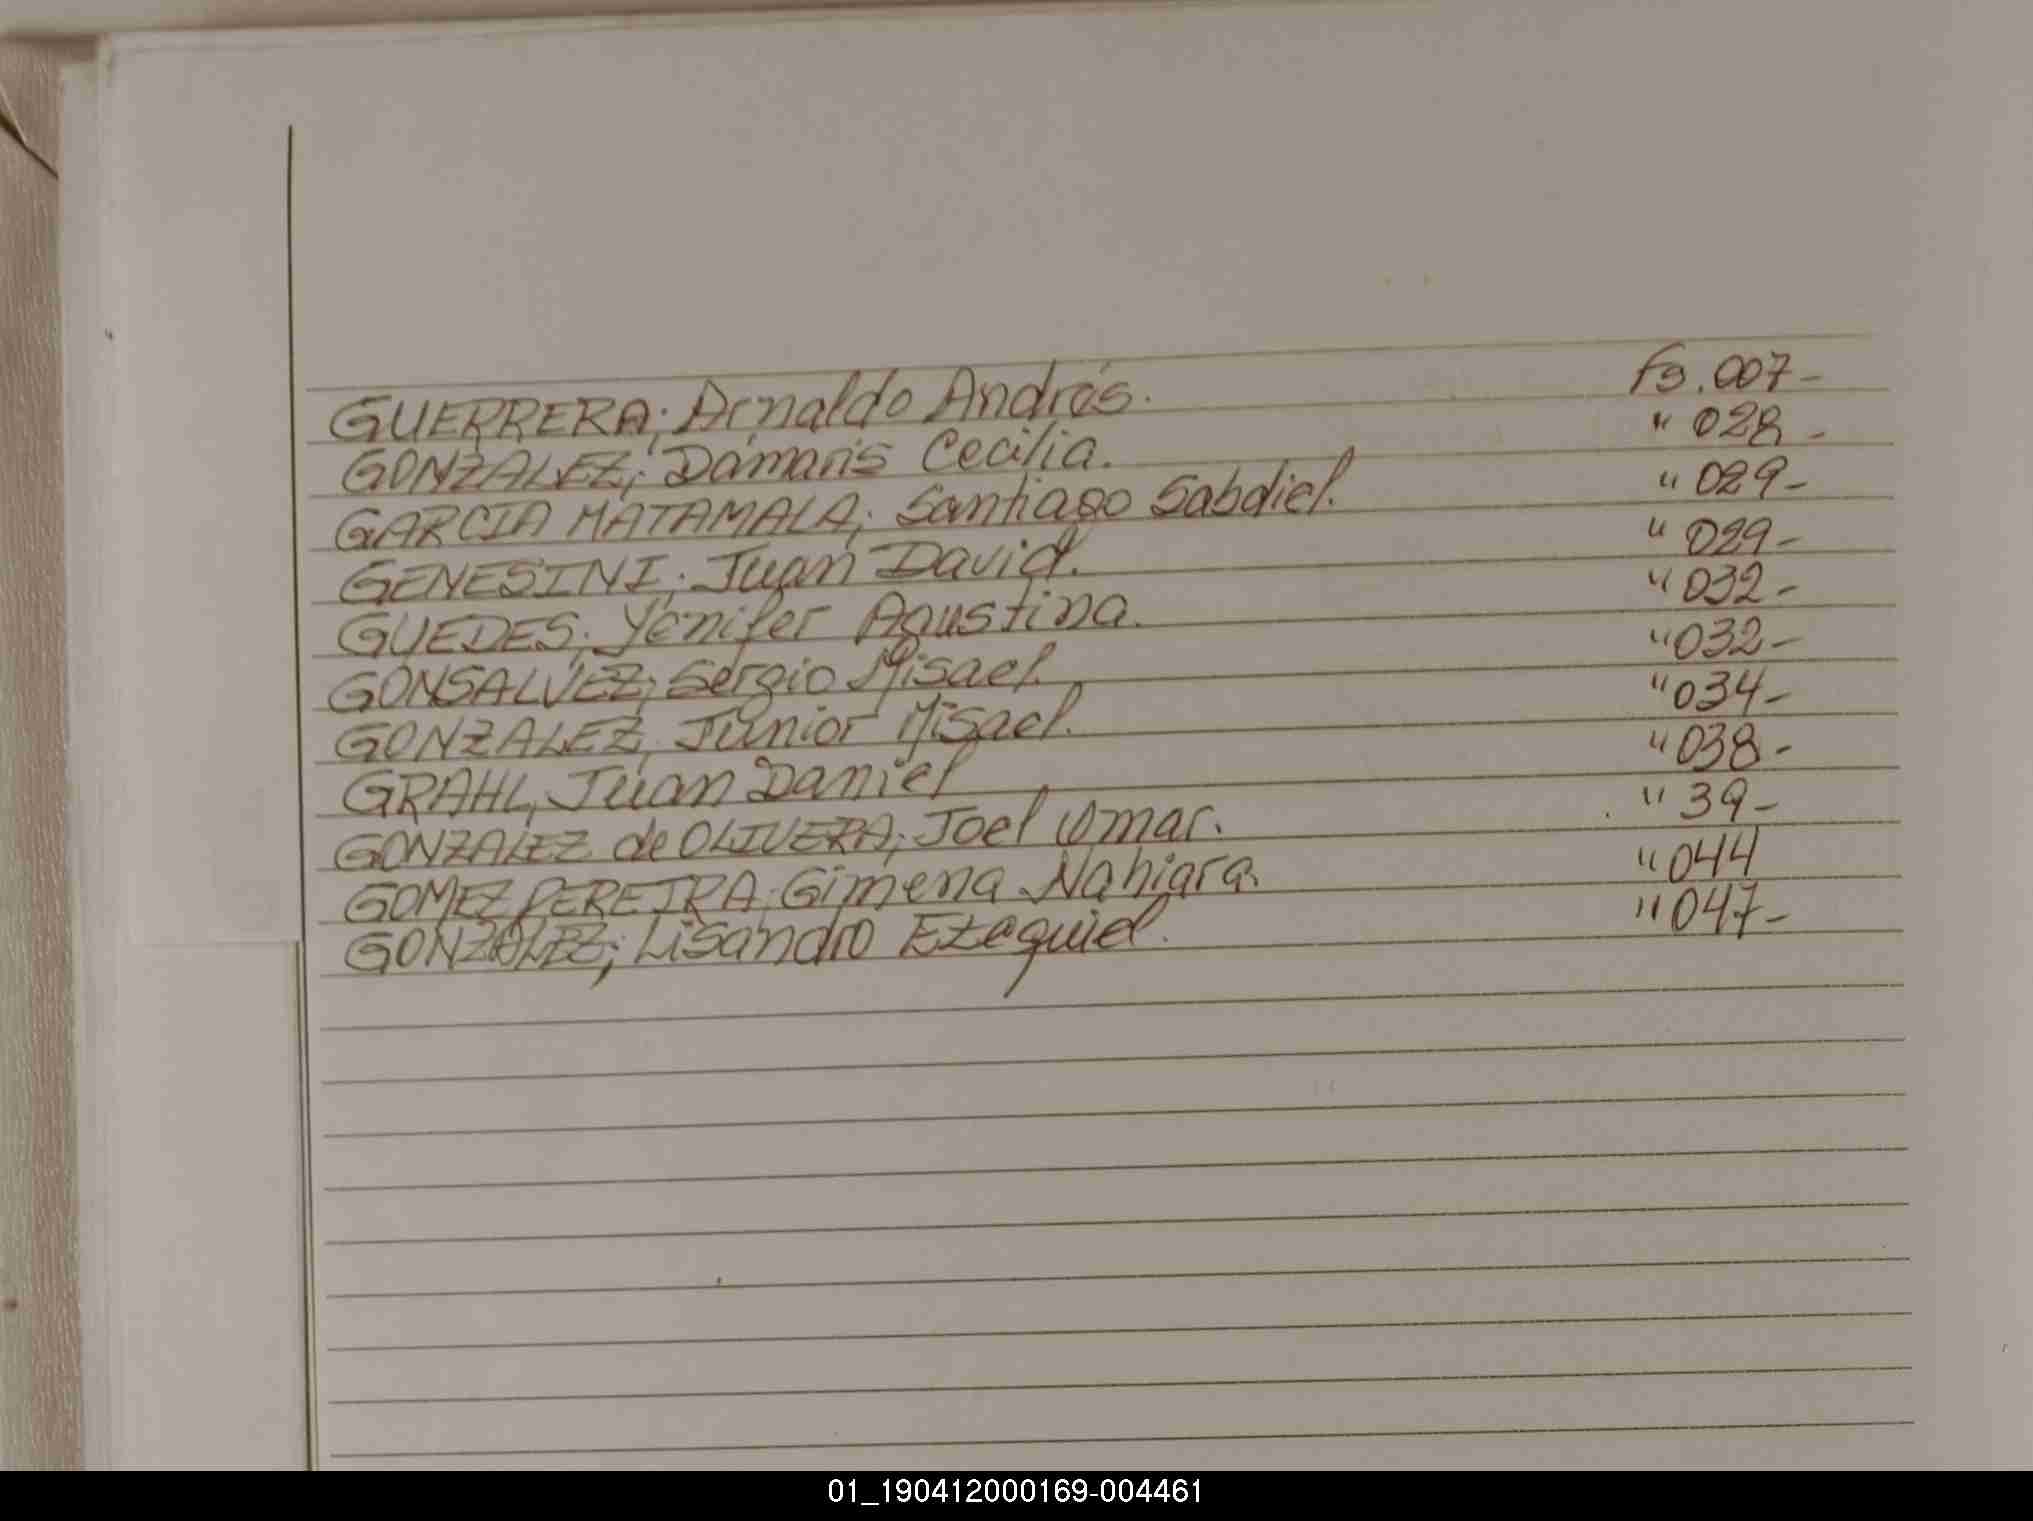 GUERRERA; Arnaldo Andrés. Fs. 007-
GONZALEZ; Dámaris Cecilia. " 028-
GARCIA MATAMALA; Santiago Sabdiel. " 029-
GENESINI; Juan David. " 029-
GUEDES; Yénifer Agustina. " 032-
GONSALVEZ; Sergio Misael. " 032-
GONZALEZ, Junior Misael. " 034-
GRAHL, Juan Daniel " 038-
GONZALEZ de OLIVERA; Joel Omar. " 39-
GOMEZ PEREIRA; Gimena Nahiara. " 044
GONZALEZ; Lisandro Ezequiel. " 047-
01_190412000169-004461